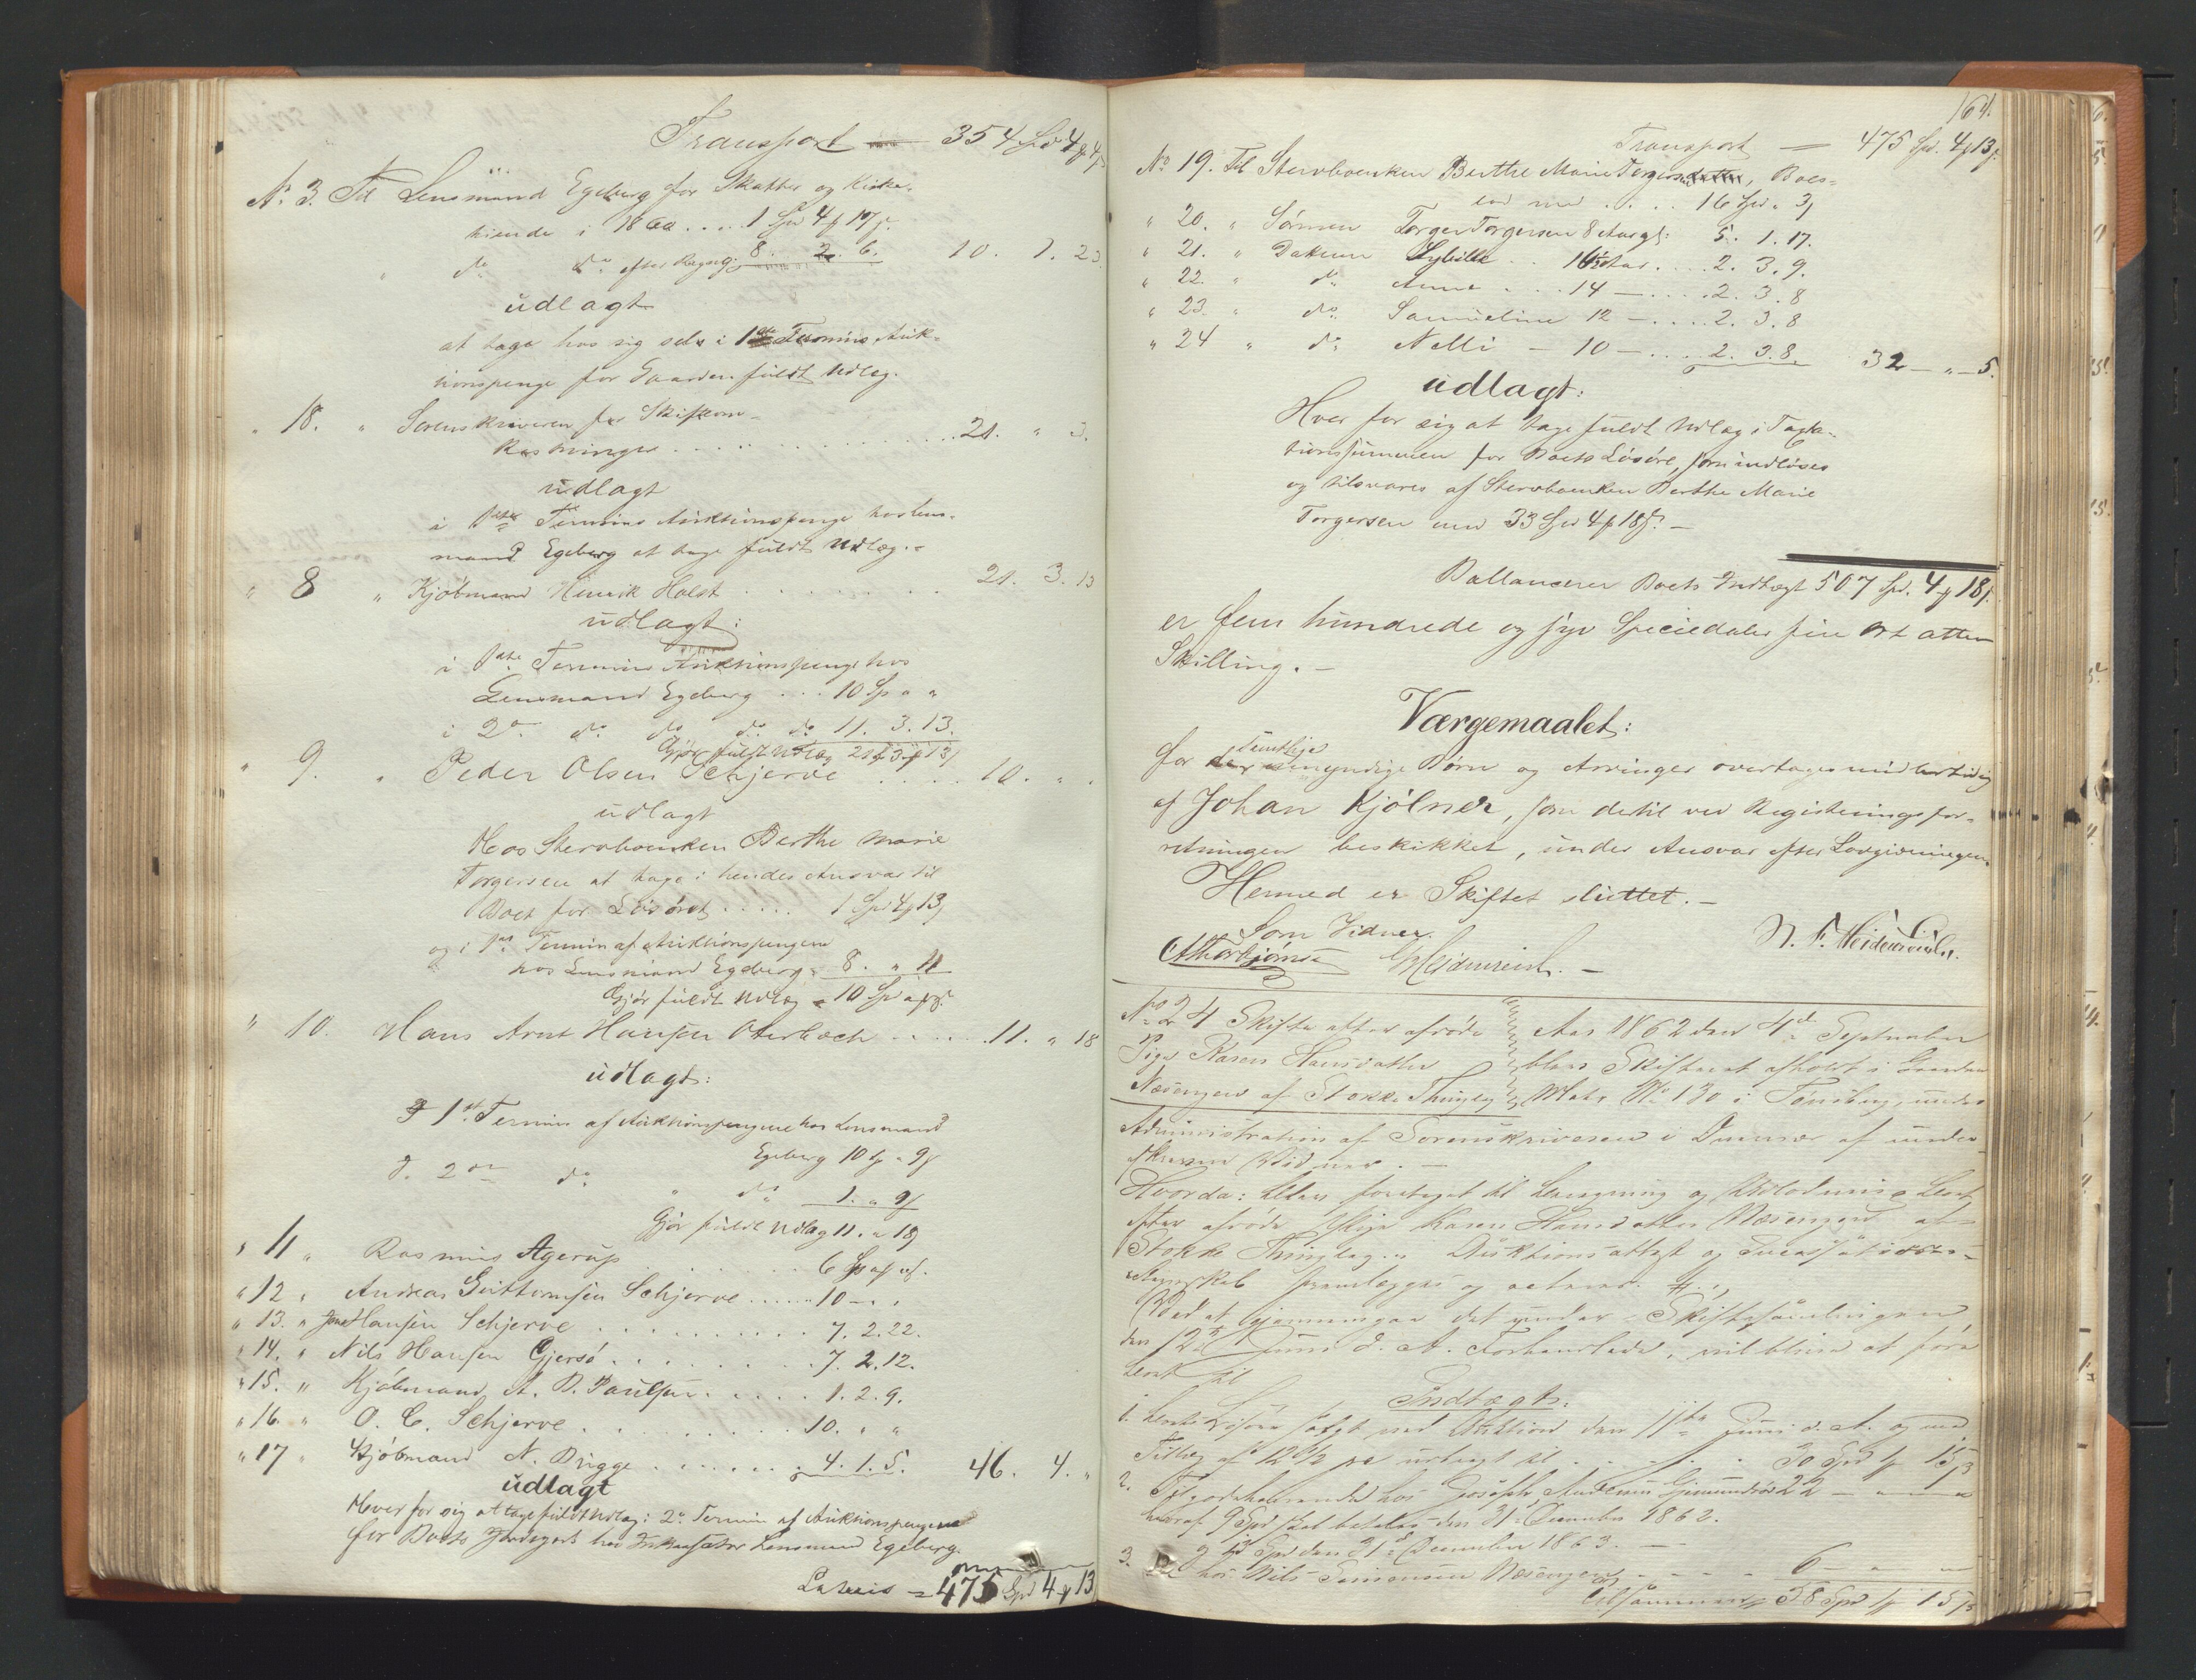 Transport — 354 Spd 4 4
No 3. Til Lensmand Egeberg for Skatter og Kirke-
tiende i 1860 .... 1 Spd 4 17
" do do efter Regng. 8. 2. 6. 10. 1. 23
udlagt
at tage hos sig selv i 1ste Termins Auk-
tionspenge for Gaarden fuldt Udlæg.
" 18. " Sorenskriveren for Skifteom-
kostninger ............ 21. " 3.
udlagt
i 1ste Termins Auktionspenge hos Lens-
mand Egeberg at tage fuldt Udlæg. -
" 8 " Kjøbmand Hinrik Holst ........ 21. 3. 13
udlagt:
i 1ste Termins Auktionspenge hos
Lensmand Egeberg ... 10 Sp " "
i 2en do do do do 11. 3. 13.
Gjør fuldt Udlæg 21 3 13
" 9. " Peder Olsen Schjerve .... 10. " "
udlagt
Hos Stervboenken Berthe Marie
Torgersen at tage i hendes Ansvar til
Boet for Løsøret ..... 1 Spd 4 13
og i 1ste Termin af Auktionspengene
hos Lensmand Egeberg 8. " 11
Gjør fuldt Udlæg = 10 Spd
" 10. Hans Arnt Hansen Oterbech ...... 11. " 18
udlagt:
I 1st Termin af Auktionspengene hos Lensmand
Egeberg 10 " 9
I. 2en do " do 1. " 9
Gjør fuldt Udlæg 11. " 18
" 11 " Rasmus Agerup ........ 6 Sp
" 12 " Andreas Guttormsen Schjerve ...... 10 - . .
" 13. " Hansen Schjerve .......... 7. 2. 22.
" 14. " Nils Hansen Gjersø ........ 7. 2. 12.
" 15. " Kjøbmand A. B. Paulsen ..... 1. 2. 9.
" 16. " O. C. Schjerve ......... 10. " "
" 17 " Kjøbmand N. Brigge ....... 4. 1. 5. 46. 4. "
udlagt
Hver for sig at tage fuldt Udlæg i 2en Termin af Auktionspengene
for Boets Jordegods hos Inkassator Lensmand Egeberg.
Lateris = 475 Spd 4 13
164.
Transport — 475 Spd. 4 13
No 19. Til Stervboenken Berthe Marie Torgersen, Boes-
lod med .... 16 Spd " 3
" 20. " Sønnen Torger Torgersen 8 Aar gl: 5. 1. 17.
" 21. " Datteren Sybille .. 16 Aar .... 2. 3. 9.
" 22. " do Anne ... 14 — .... 2. 3. 8
" 23. " do Samueline 12 — .... 2. 3. 8
" 24 " do Nelli — 10 — .... 2. 3. 8. 32 — " — 5.
udlagt:
Hver for sig at tage fuldt Udlæg i Taxa-
tionssummen for Boets Løsøre, som indløses
og tilsvares af Stervboenken Berthe Marie
Torgersen med 33 Spd 4 18 —
Ballancerer Boets Indtægt 507 Spd. 4 18
er fem hundrede og syv Speciedaler fire Ort atten
Skilling. —
Værgemaalet:
for samtlige umyndige Børn og Arvinger overtages midlertidig
af Johan Kjølner, som dertil ved Registreringsfor-
retningen beskikket, under Ansvar efter Lovgivningen.
Hermed er Skiftet sluttet. —
N. F. Heidenreich.
Som Vidner.
Thorbjørnsen Heidenreich. —
No 24 Skifte efter afdøde
Pige Karen Hansdatter
Næsengen af Stokke Thinglag
Aar 1862 den 4de September
blev Skifteret afholdt i Gaarden
Matr No 130 i Tønsberg, under
Administration af Sorenskriveren i Overvær af under-
skrevne Vidner. —
Hvorda: blev foretaget til Beregning og Udlodning Boet
efter afdøde Pige Karen Hansdatter Næsengen af
Stokke Thinglag. Auktionsattest og
Regnskab fremlægges og acteres.
Ved at gjennemgaa det under Skiftesamlingen
den 12te Juni d. A. Forhandlede, vil blive at føre
Boet til
Indtægt:
1. Boets Løsøre solgt ved Auktion den 11te Juni d. A. og med
Tillæg af 12 1/2 pC udbragt til ..... 30 Spd 15
2. Tilgodehavende hos Joseph Andersen 22 — " — "
hvoraf 9 Spd skal betales den 31 December 1862.
og 13 Spd den 31 December 1863. —
3. Do hos Nils Simensen Næsengen - - - - 6 — " —
Tilsammen 58 Spd 15